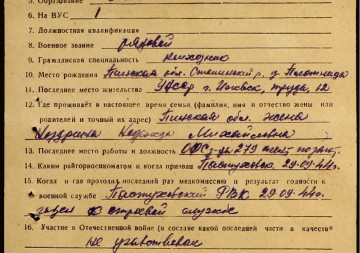 5. Образование
6. На ВУС 1
7. Должностная квалификация
8. Военное звание рядовой
9. Гражданская специальность
10. Место рождения Пинская обл. Столинский р. д. Плотница
11. Последнее место жительства УАССР г. Ижевск, Труда, 12
12. Где проживает в настоящее время семья (фамилия, имя и отчество жены или
родителей и точный их адрес) Пинская обл. жена
Надежда Михайловна
13. Последнее место работы и должность з-да 279
14. Каким райгорвоенкоматом и когда призван Пастуховск. 29.09.44г.
15. Когда и где проходил последний раз медкомиссию и результат годности к
военной службе Пастуховский РВК 29.09.44г.
годен к строевой службе
16. Участие в Отечественной войне (в составе какой последней части и в качестве
не участвовал